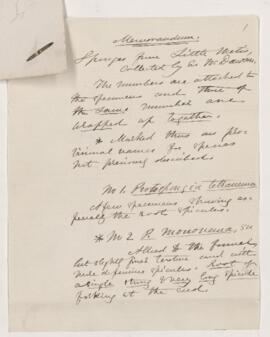 1
Memorandum.
Sponges from Little Metis,
collected by Sir W Dawson.
The numbers are attached to
the specimens and those of
the same number are
wrapped up together.
* Marked thus are pro-
visional names for species
not previously described
No 1. Protospongia tetranema
A few specimens showing es-
pecially the root spicules.
* No 2 P. mononema, sn
Allied to the former
but slightly finer texture and with
wide defensive spicules. Root of
a single strong & very long spicule
forking at the end.